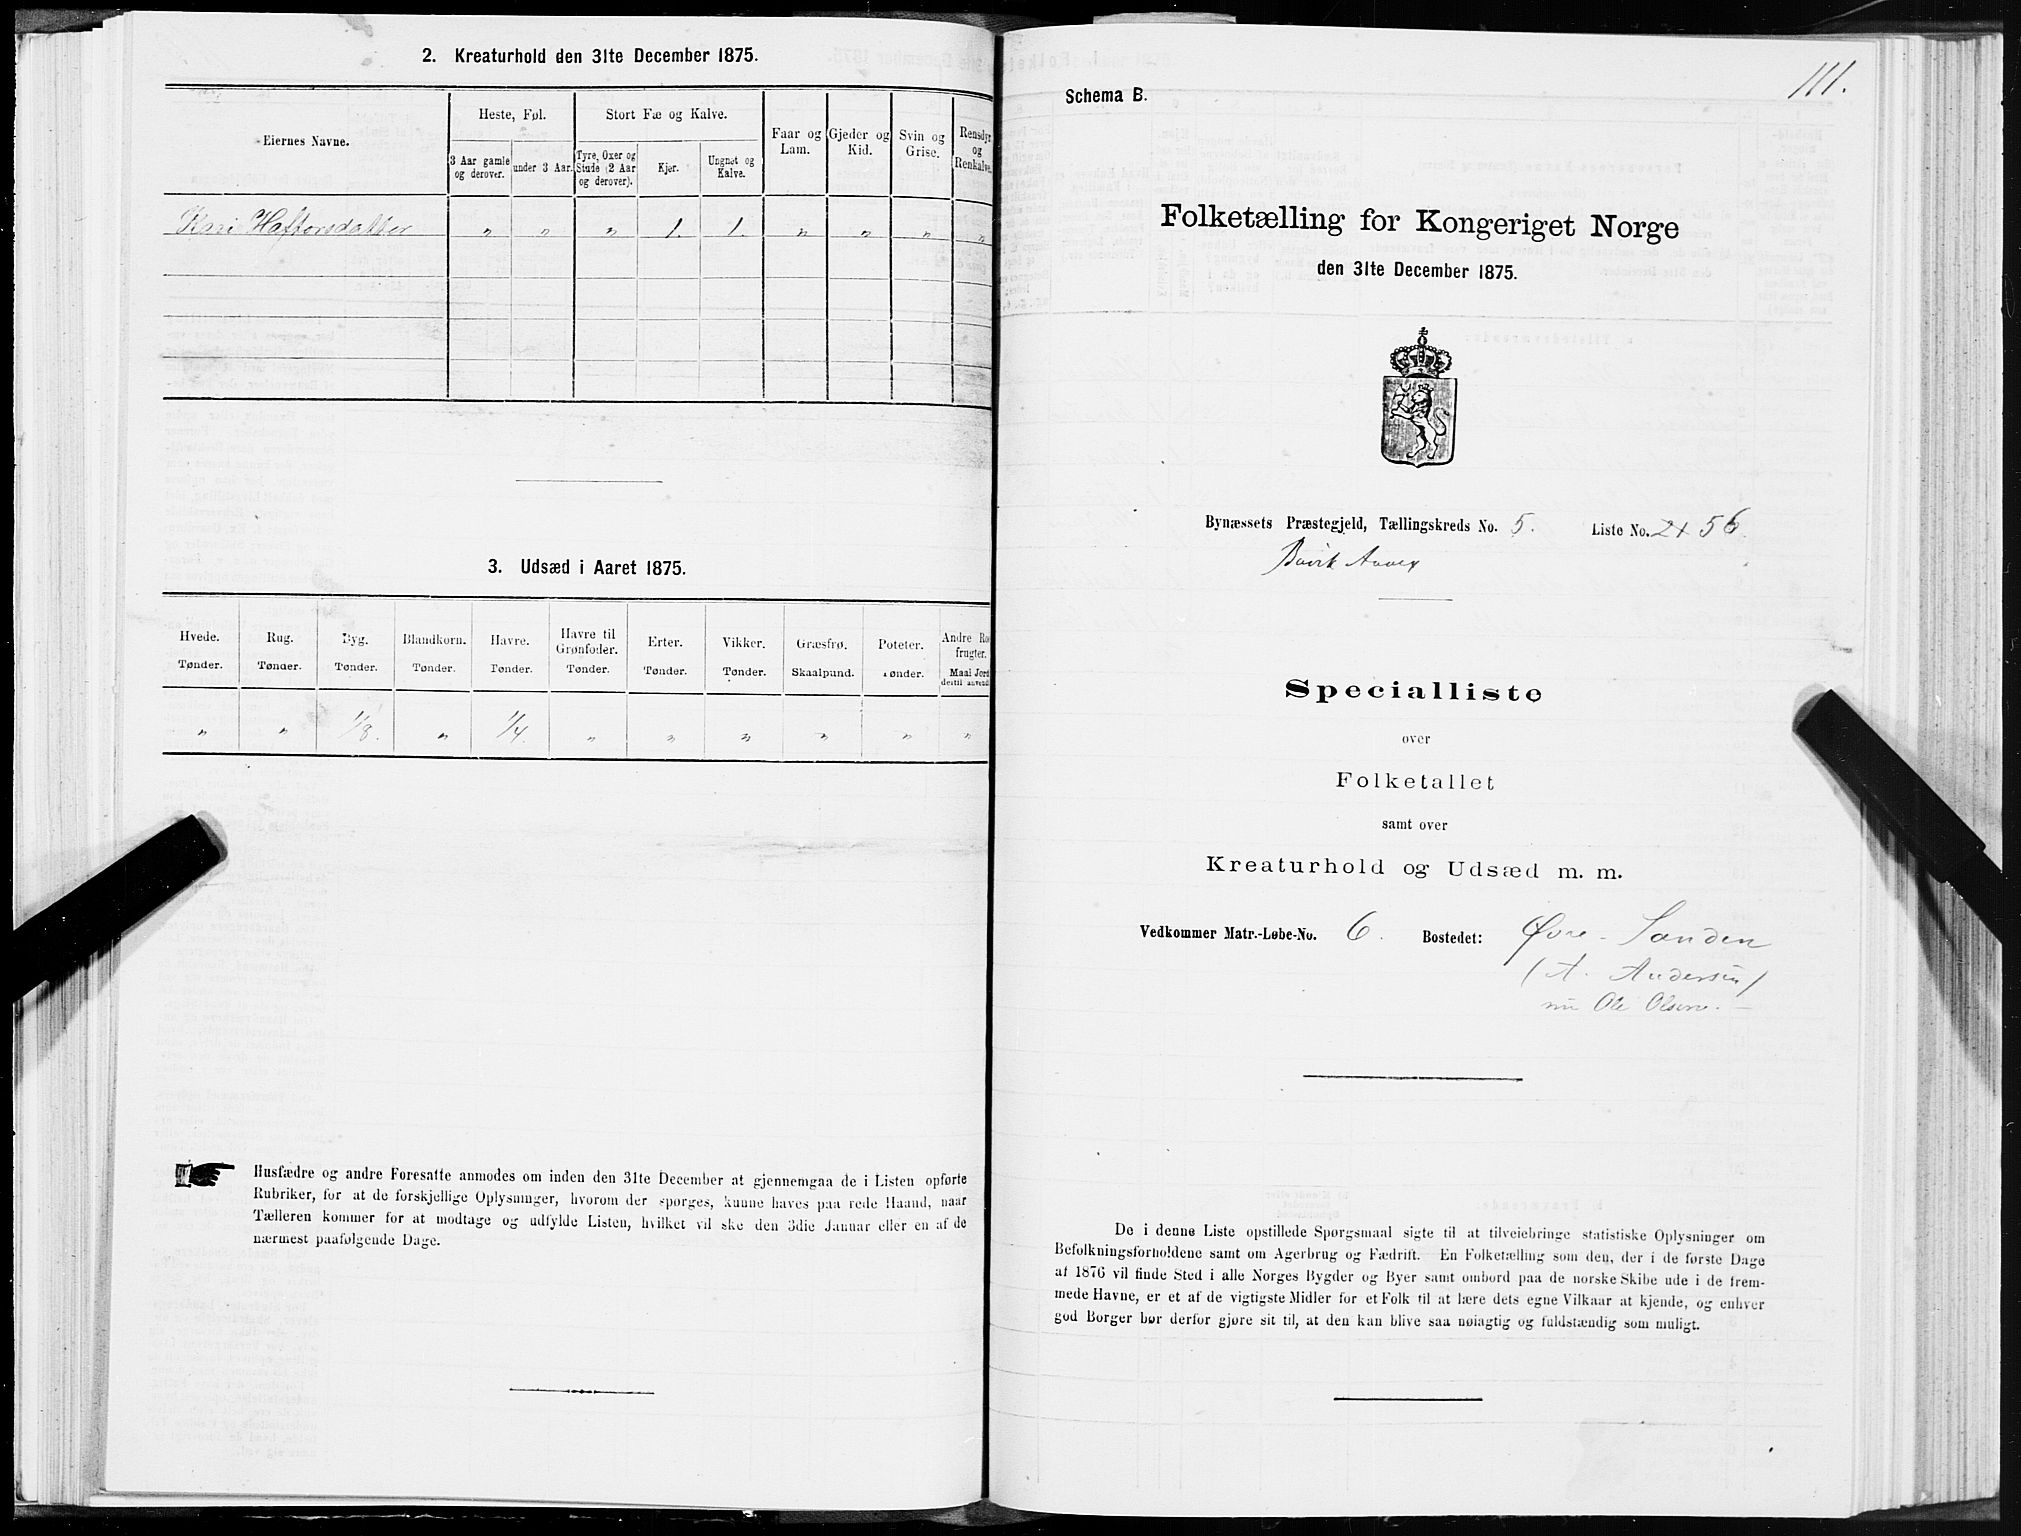 2. Kreaturhold den 31te December 1875.
Eiernes Navne.
Heste, Føl.
Stort Fæ og Kalve.
Faar og Lam.
Gjeder og Kid.
Svin og Grise.
Rensdyr og Renkalve.
3 Aar gamle og derover.
under 3 Aar.
Tyre, Oxer og Stude (2 Aar og derover).
Kjer.
Ungnøt og Kalve.
Kari Haftorsdatter " " " 1. 1. " " " "
3. Udsæd i Aaret 1875.
Hvede. Rug. Byg. Blandkorn. Havre. Havre til Grønfoder. Erter. Vikker. Græsfrø. Poteter. Andre Ro frugter.
Tønder. Tønder. Tønder. Tønder. Tønder. Tønder. Tønder. Tønder. Skaalpund. Tønder. Maal Jord dertil anvend
" " 1/8. " 1/4 " " " " " "
Husfædre og andre Foresatte anmodes om inden den 31te December at gjennemgaa de i Listen opførte
Rubriker, for at de forskjellige Oplysninger, hvorom der spørges, kunne haves paa rede Haand, naar
Tælleren kommer for at modtage og udfylde Listen, hvilket vil ske den 3die Januar eller en af de
nærmest paafølgende Dage.
111.
Schema B.
Folketælling for Kongeriget Norge
den 31te December 1875.
Bynæssets Præstegjeld, Tællingskreds No. 5. Liste No. 56.
Specialliste
over
Folketallet
samt over
Kreaturhold og Udsæd m. m.
Vedkommer Matr.-Løbe-No. 6. Bostedet: Øvre-Sanden
(A. Andersen)
nu Ole Olsen.
De i denne Liste opstillede Spørgsmaal sigte til at tilveiebringe statistiske Oplysninger om
Befolkningsforholdene samt om Agerbrug og Fædrift. En Folketælling som den, der i de første Dage
af 1876 vil finde Sted i alle Norges Bygder og Byer samt ombord paa de norske Skibe ude i de frem-
mede Havne, er et af de vigtigste Midler for et Folk til at lære dets egne Vilkaar at kjende, og enhver
god Borger bør derfor gjøre sit til, at den kan blive saa nøiagtig og fuldstændig som muligt.